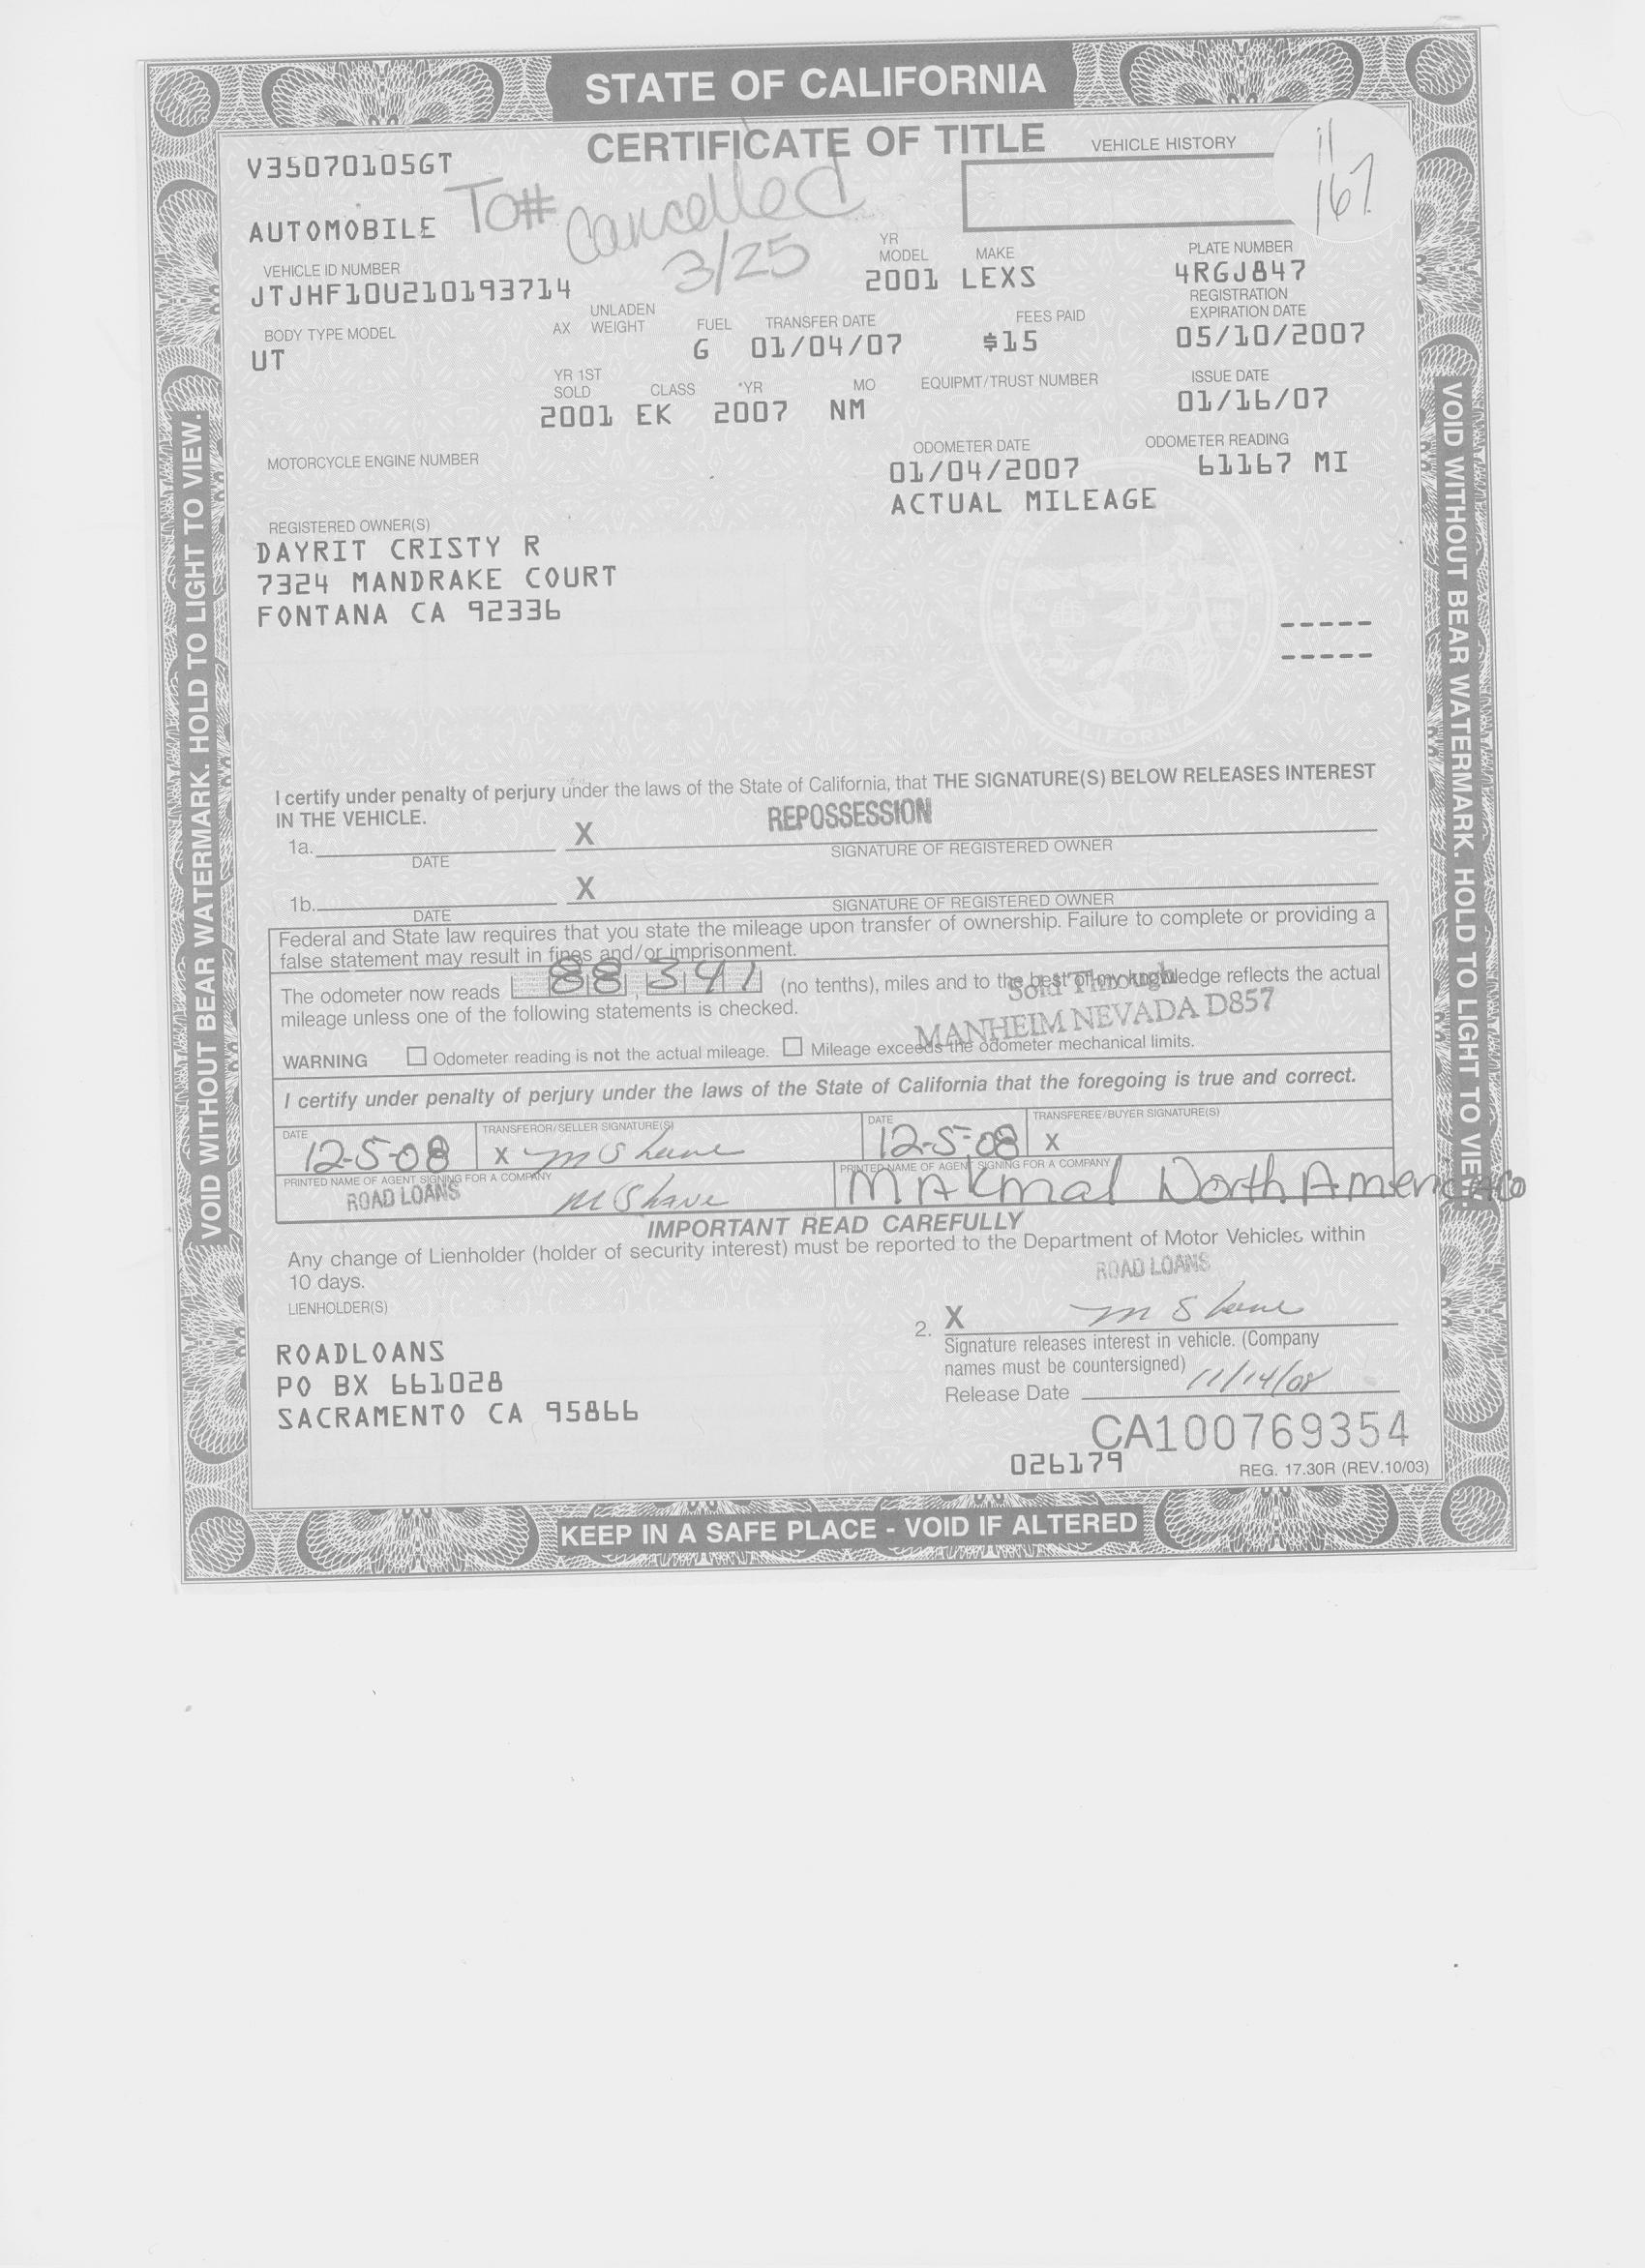 STATE OF CALIFORNIA
CERTIFICATE OF TITLE
VEHICLE HISTORY
11
167
V35070105GT
TO# Cancelled
3/25
AUTOMOBILE
VEHICLE ID NUMBER
JTJHF10U210193714
YR MODEL
2001
MAKE
LEXS
PLATE NUMBER
4RGJ847
BODY TYPE MODEL
UT
AX
UNLADEN WEIGHT
FUEL
G
TRANSFER DATE
01/04/07
FEES PAID
$15
REGISTRATION EXPIRATION DATE
05/10/2007
YR 1ST SOLD
2001
CLASS
EK
*YR
2007
MO
NM
EQUIPMT/TRUST NUMBER
ISSUE DATE
01/16/07
MOTORCYCLE ENGINE NUMBER
ODOMETER DATE
01/04/2007
ODOMETER READING
61167 MI
ACTUAL MILEAGE
REGISTERED OWNER(S)
DAYRIT CRISTY R
7324 MANDRAKE COURT
FONTANA CA 92336
-----
-----
CALIFORNIA
I certify under penalty of perjury under the laws of the State of California, that THE SIGNATURE(S) BELOW RELEASES INTEREST
IN THE VEHICLE.
REPOSSESSION
1a. X
DATE SIGNATURE OF REGISTERED OWNER
1b. X
DATE SIGNATURE OF REGISTERED OWNER
Federal and State law requires that you state the mileage upon transfer of ownership. Failure to complete or providing a
false statement may result in fines and/or imprisonment.
The odometer now reads 88,341 (no tenths), miles and to the best of my knowledge reflects the actual
mileage unless one of the following statements is checked.
Sold Through
MANHEIM NEVADA D857
WARNING Odometer reading is not the actual mileage. Mileage exceeds the odometer mechanical limits.
I certify under penalty of perjury under the laws of the State of California that the foregoing is true and correct.
DATE
12-5-08
TRANSFEROR/SELLER SIGNATURE(S)
X M Shane
DATE
12-5-08
TRANSFEREE/BUYER SIGNATURE(S)
X
PRINTED NAME OF AGENT SIGNING FOR A COMPANY
ROAD LOANS M Shane
PRINTED NAME OF AGENT SIGNING FOR A COMPANY
MAKmal North America
IMPORTANT READ CAREFULLY
Any change of Lienholder (holder of security interest) must be reported to the Department of Motor Vehicles within
10 days.
ROAD LOANS
LIENHOLDER(S)
ROADLOANS
PO BX 661028
SACRAMENTO CA 95866
2. X M Shane
Signature releases interest in vehicle. (Company
names must be countersigned)
Release Date 11/14/08
CA100769354
026179
REG. 17.30R (REV.10/03)
KEEP IN A SAFE PLACE - VOID IF ALTERED
VOID WITHOUT BEAR WATERMARK. HOLD TO LIGHT TO VIEW.
VOID WITHOUT BEAR WATERMARK. HOLD TO LIGHT TO VIEW.